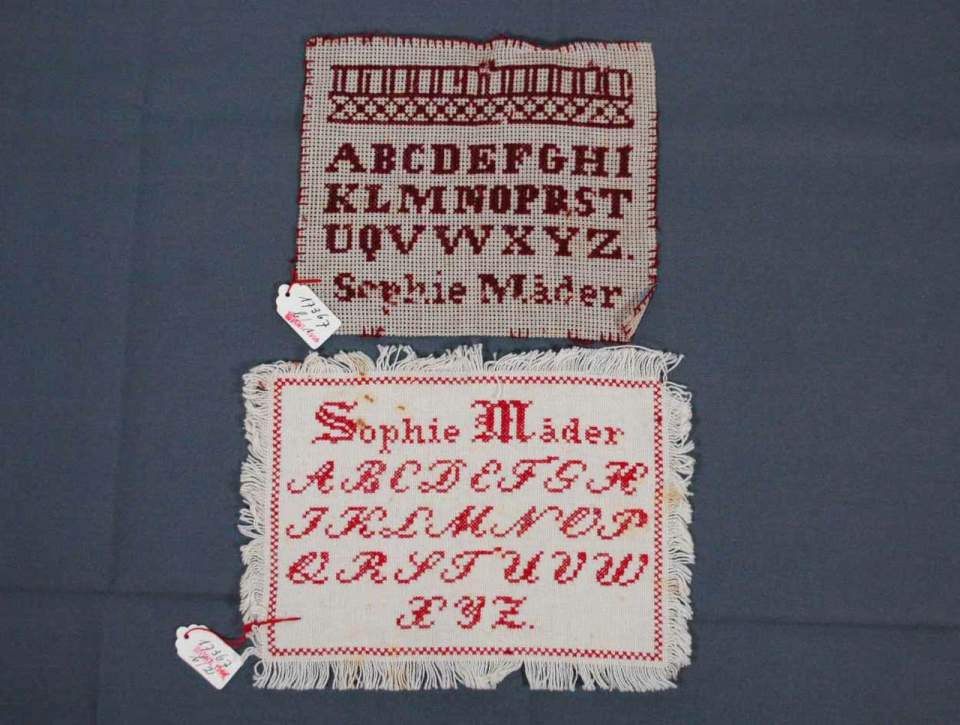 ABCDEFGHI
KLMNOPRST
UQVWXYZ.
Sophie Mäder
17367
Sophie Mäder
ABCDEFGH
IKLMNOP
QRSTUVW
XYZ.
17367